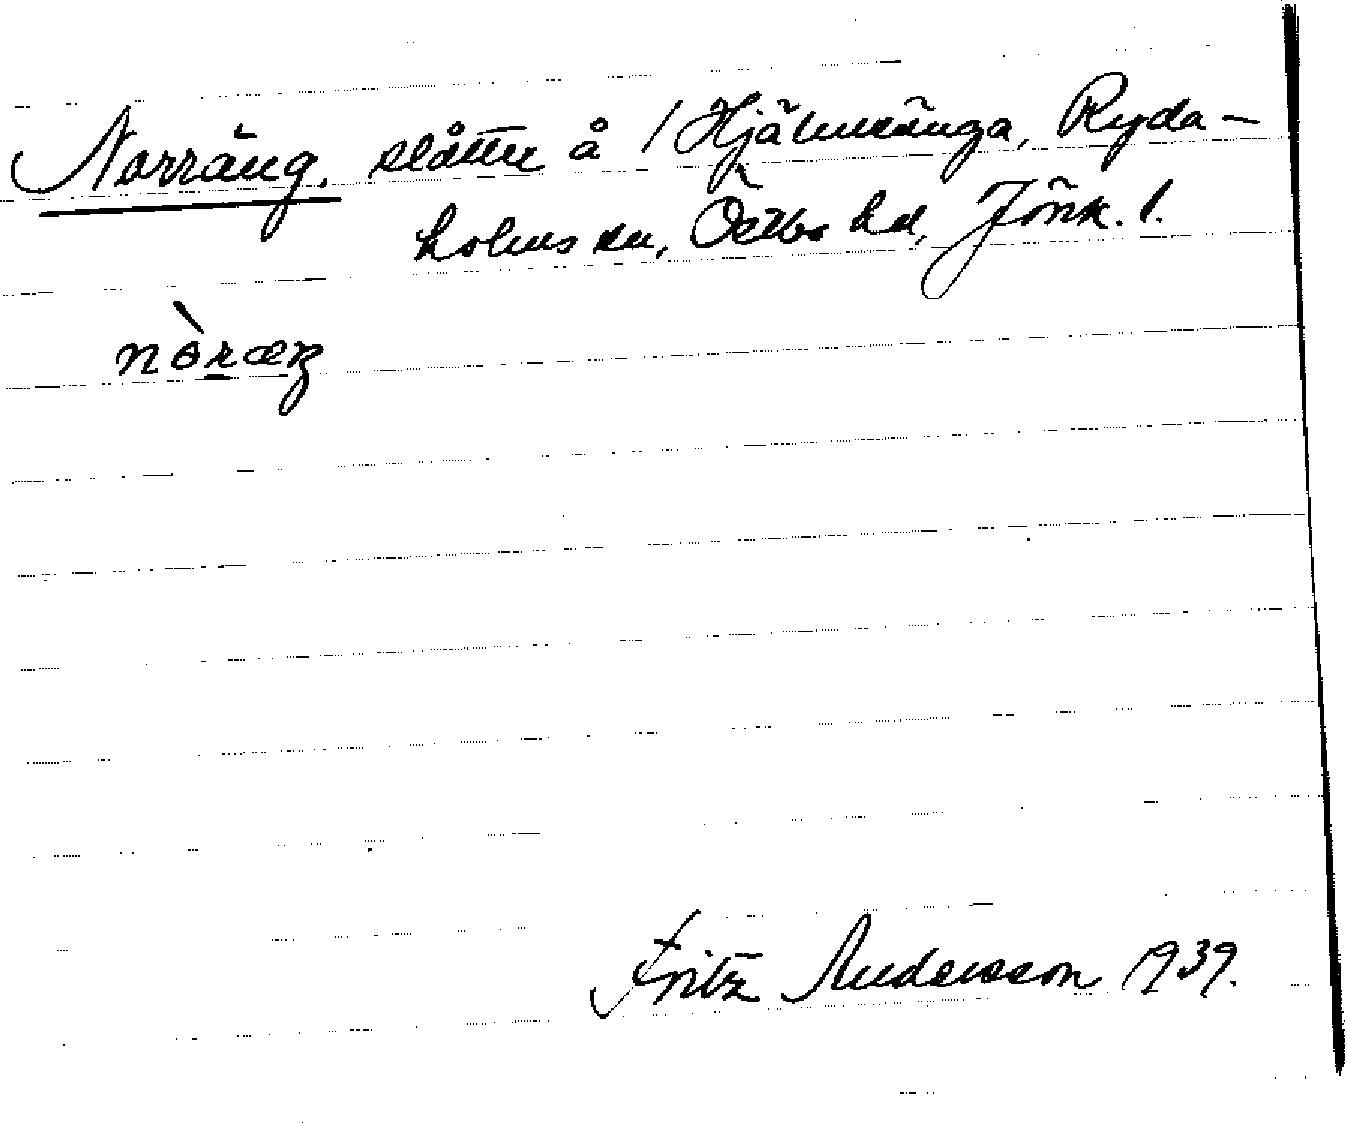 Norräng. slåtter å / Hjälmänga, Ryda-
holms sn, Östbo hd, Jönk. l.
nòræŋ
Fritz Andersson 1939.